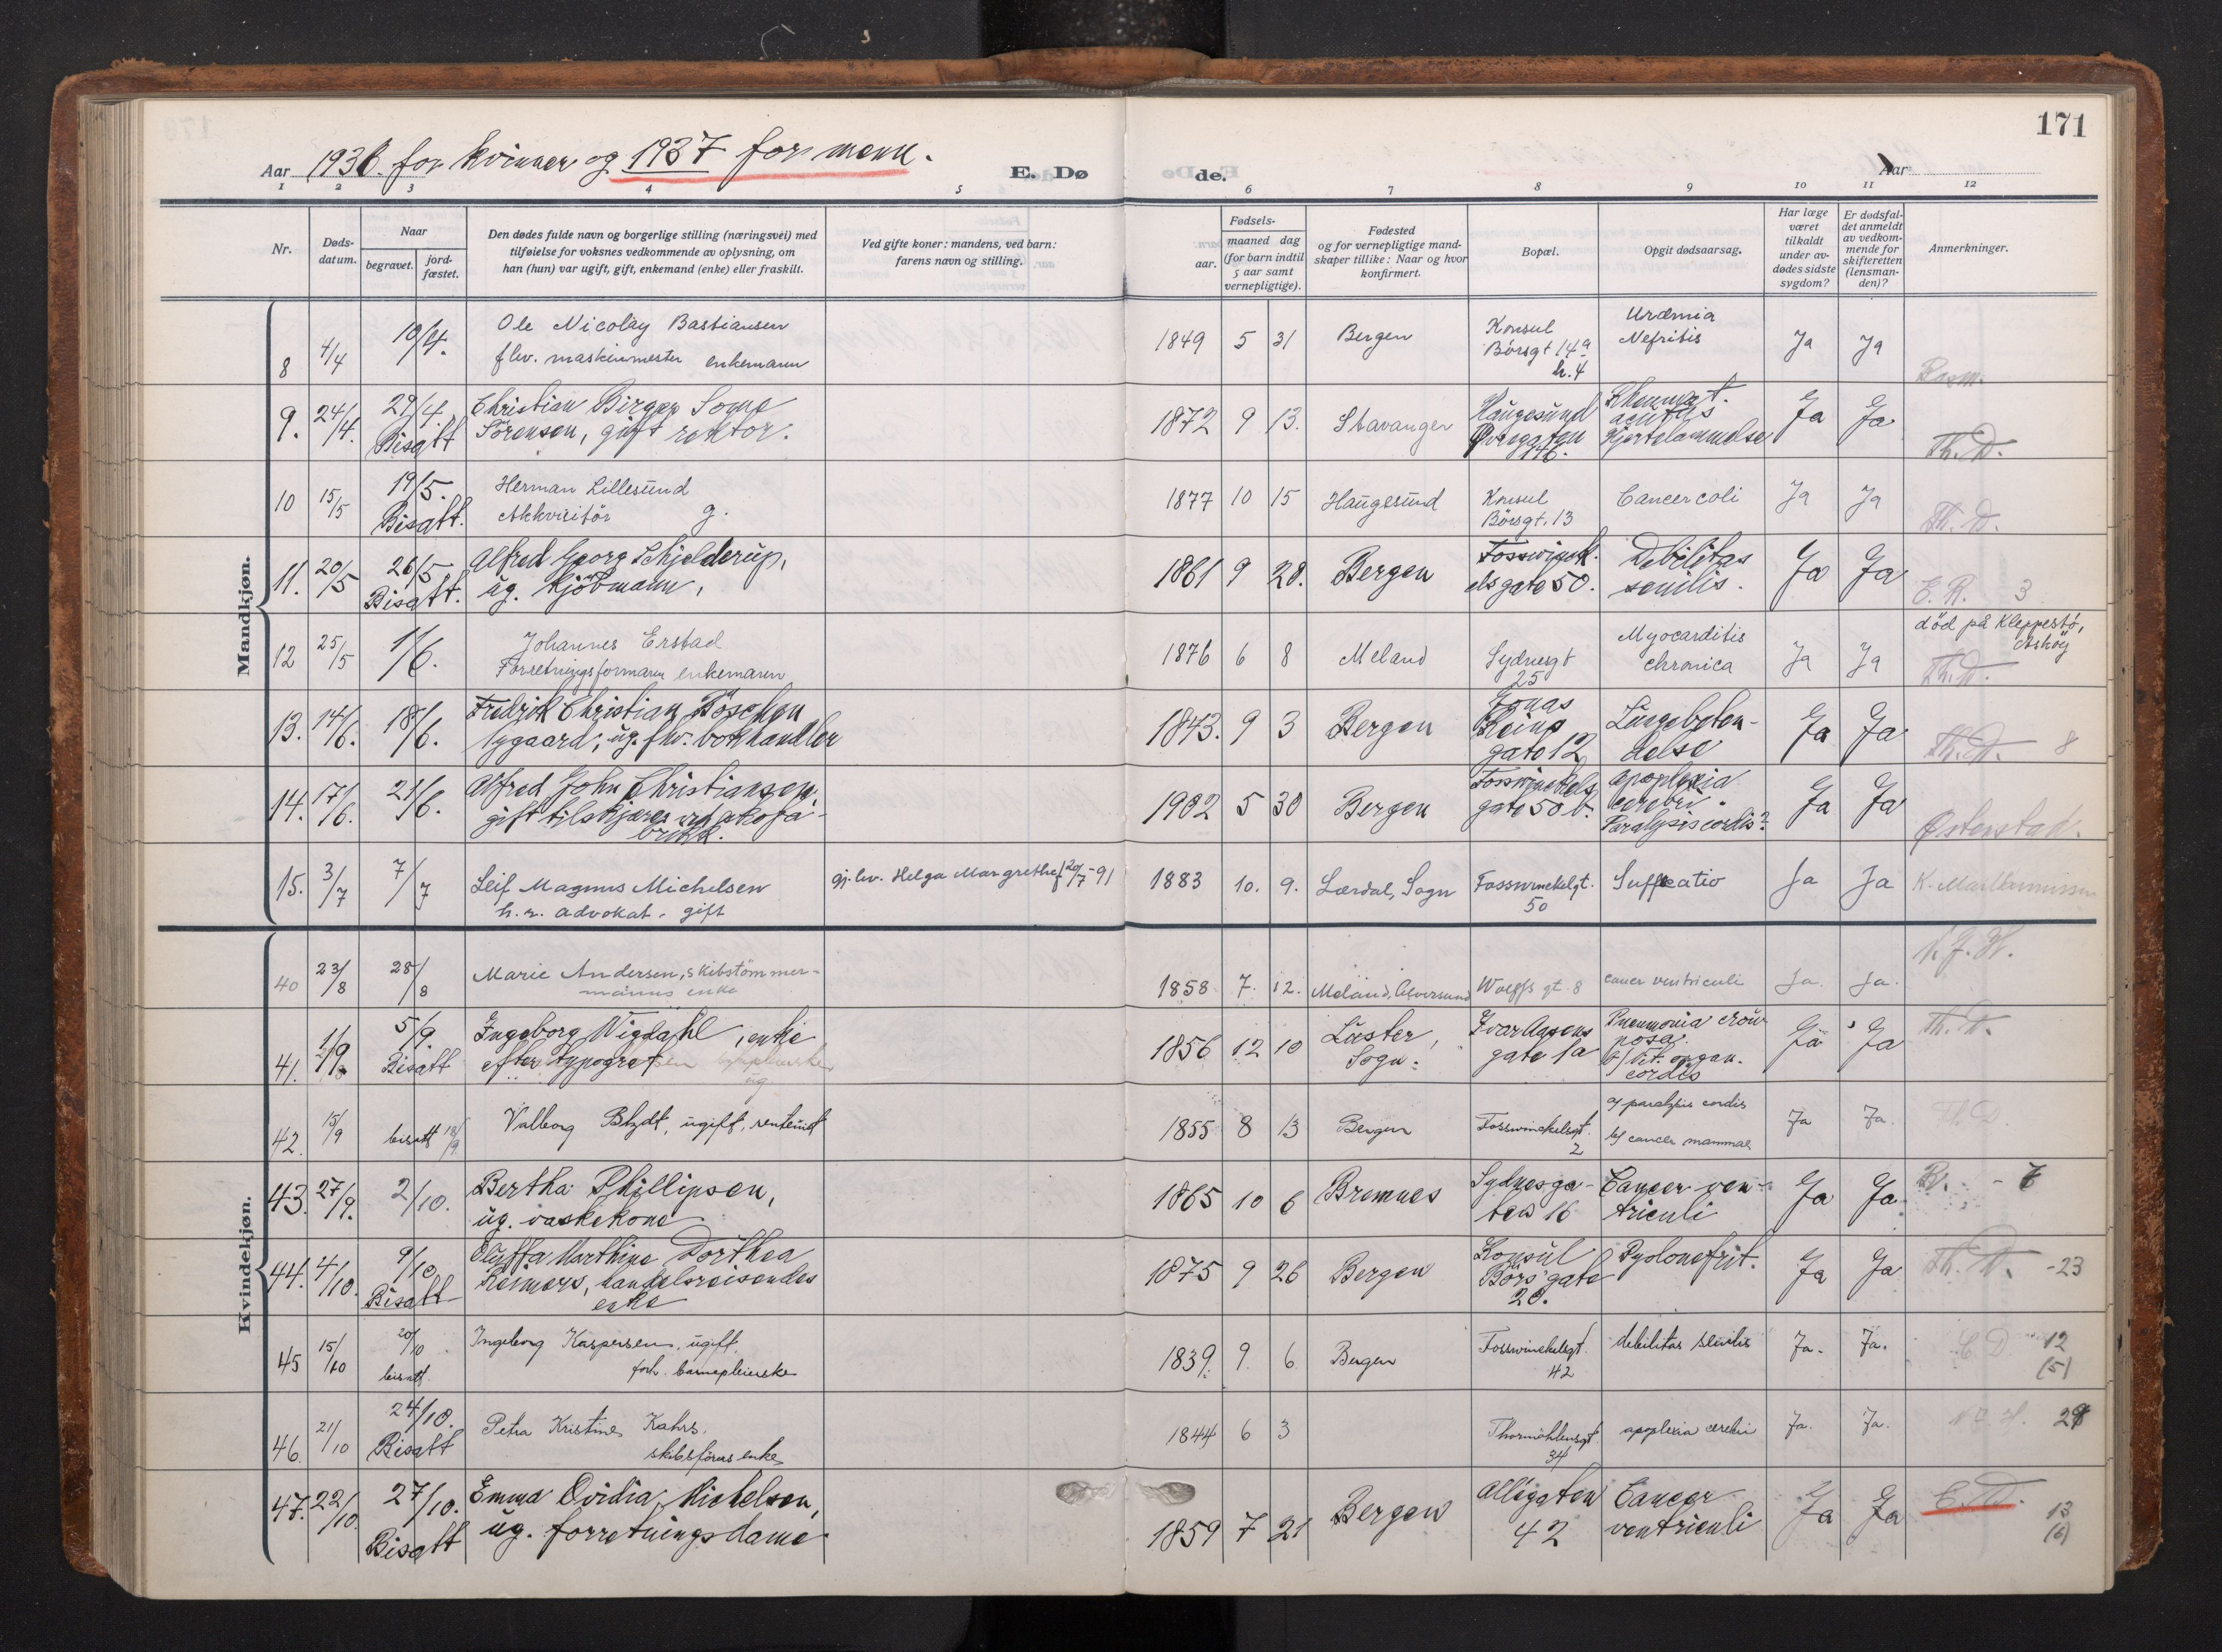 171
Aar 1936 for kvinner og 1937 for menn.
E. Dø de.
Aar
1 2 3 4 5 6 7 8 9 10 11 12
Nr.
Døds-
datum.
Naar
begravet.
jord-
fæstet.
Den dødes fulde navn og borgerlige stilling (næringsvei) med
tilføielse for voksnes vedkommende av oplysning, om
han (hun) var ugift, gift, enkemand (enke) eller fraskilt.
Ved gifte koner: mandens, ved barn:
farens navn og stilling.
Fødsels-
aar.
maaned dag
(for barn indtil
5 aar samt
vernepligtige).
Fødested
og for vernepligtige mand-
skaper tillike: Naar og hvor
konfirmert.
Bopæl.
Opgit dødsaarsag.
Har læge
været
tilkaldt
under av-
dødes sidste
sygdom?
Er dødsfal-
det anmeldt
av vedkom-
mende for
skifteretten
(lensman-
den)?
Anmerkninger.
Mandkjøn.
8 4/4 10/4. Ole Nicolay Bastiansen
flv. maskinmester enkemann
1849 5 31 Bergen Konsul
Börsgt 14a
h. 4
Urämia
Nefritis
Ja Ja
9. 24/4. 29/4. Bisatt
Christian Birger Some
Sörensen, gift rektor.
1872 9 13. Stavanger Haugesund
Övregaten
146.
Rheumat.
acutus
Hjertelammelse
Ja Ja Th. D.
10 15/5 19/5. Bisatt.
Herman Lillesund
Akkvisitör g.
1877 10 15 Haugesund Konsul
Börsgt. 13
Cancer coli Ja Ja Th. D.
11. 20/5 26/5 Bisatt.
Alfred Georg Schjelderup,
ug. kjöbmann,
1861 9 28. Bergen Fosswinck-
elsgate 50.
Debilitas
senilis.
Ja Ja E. R. 3
12 25/5 1/6.
Johannes Erstad
Forretningsformann enkemann
1876 6 8 Meland Sydnesgt
25
Myocarditis
chronica
Ja Ja
död på Kleppestö,
Askøy
Th. D.
13. 14/6. 18/6.
Fredrik Christian Böschen
Nygaard, ug. flv. bokhandler
1843. 9 3 Bergen Jonas
Reins
gate 12
Lungebeten-
delse
Ja Ja Th. D. 8
14. 17/6. 21/6.
Alfred John Christiansen,
gift tilskjærer ved skofa-
brikk.
1902 5 30 Bergen Fosswinckels
gate 50 b.
apoplexia
cerebri.
Paralysis cordis?
Ja Ja Østerstad.
15. 3/7 7/7
Leif Magnus Michelsen
h. r. advokat. gift
gj. lev. Helga Margrethe f. 20/7-91
1883 10. 9. Lærdal, Sogn Fosswinckelgt.
50
Suffocatio Ja Ja
Kvindekjøn.
40 23/8 28/8
Marie Andersen, skibstömmer-
manns enke
1858 7. 12. Meland, Alversund Wolffs gt. 8
cancer ventriculi Ja. Ja. N. J. H.
41. 1/9 5/9. Bisatt
Ingeborg Wigdahl, enke
efter typograf
1856 12 10 Luster,
Sogn.
Ivar Aasens
gate 1a
Pneumonia croup
posa.
b/ Vit. organ.
cordis
Ja Ja Th. D.
42. 15/9 bisatt 18/9.
Valborg Blydt, ugift, rentenist
1855 8 13 Bergen Fosswinckelsgt.
2
a/ paralysis cordis
b/ cancer mammae
Ja Ja. Th. D.
43. 27/9. 2/10.
Bertha Phillipsen,
ug. vaskekone
1865 10 6 Bremnes Sydnesga-
ten 16
Cancer ven-
triculi
Ja Ja
44. 4/10. 9/10 Bisatt
Oluffa Marthine Dorthea
Reimers, handelsreisendes
enke
1875 9 26 Bergen Konsul
Börs gate
20.
Pyelonefrit. Ja Ja Th. D. -23
45 15/10 20/10 bisatt.
Ingeborg Kaspersen, ugift.
forh. barnepleierske
1839. 9. 6 Bergen Fosswinckelsgt.
42
debilitas senilis Ja. Ja. C D 12
(5)
46. 21/10 24/10. Bisatt
Petra Kristine Kahrs.
skibsförers enke
1844 6 3 Thormöhlensgt.
34
apoplexia cerebri Ja. Ja. N. J. H.
47. 22/10. 27/10. Bisatt
Emma Ovidia Michelsen,
ug. forretningsdame
1859 7 21 Bergen Allégaten
42
Cancer
ventriculi
Ja Ja C. D. 13
(6)